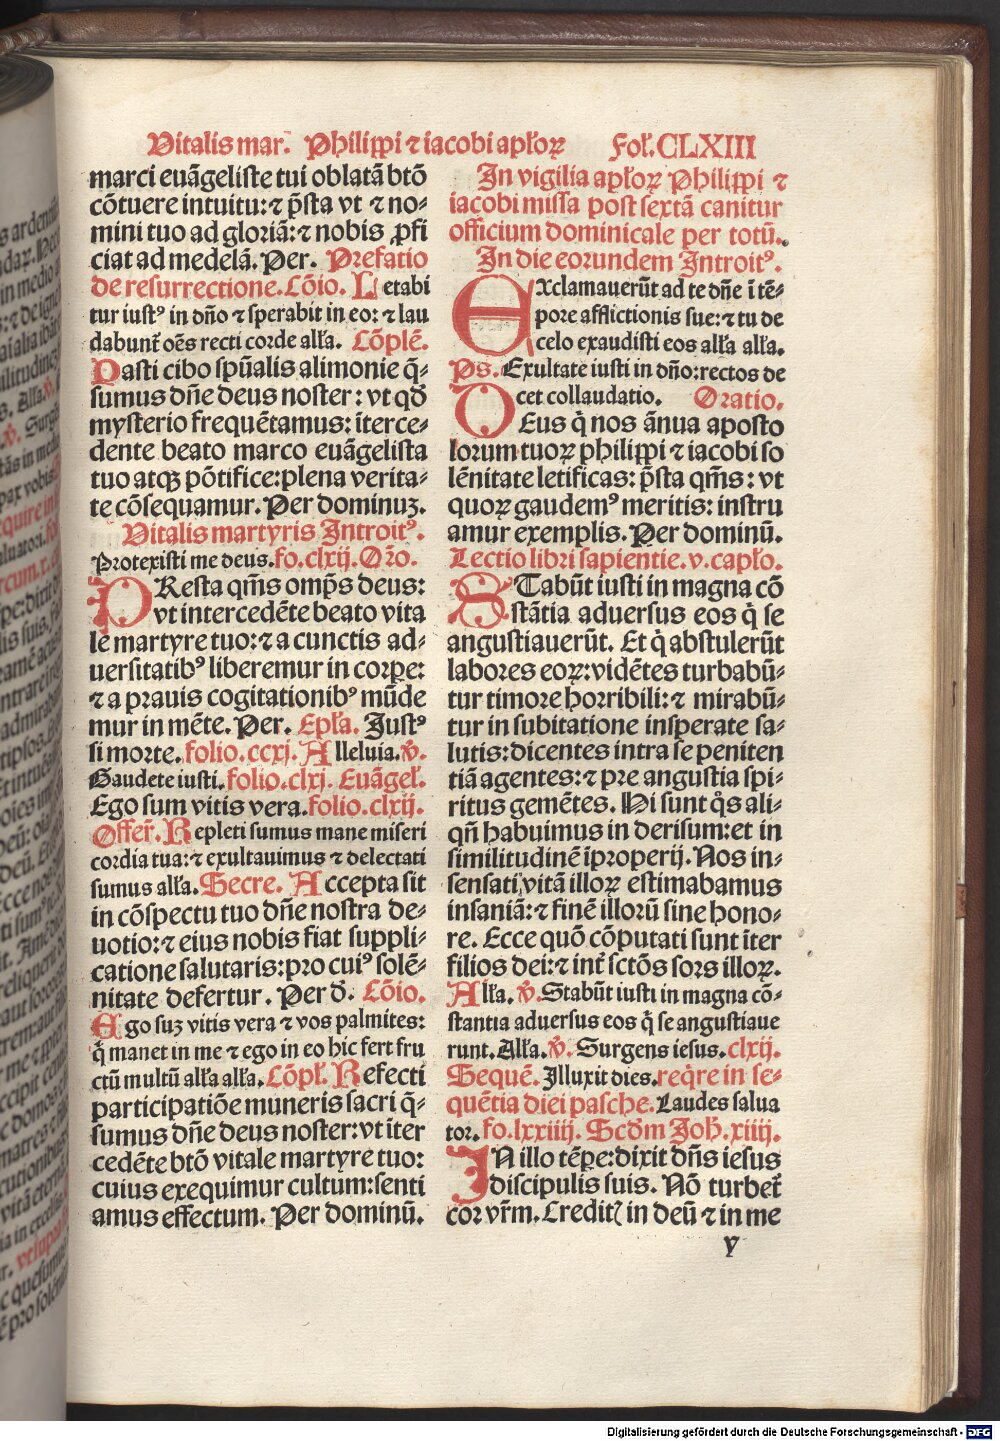 Vitalis mar. Philippi ⁊ iacobi aplōꝝ Fol̄. CLXIII
marci euāgeliste tui oblatā btō
cōtuere intuitu: ⁊ p̄sta vt ⁊ no⸗
mini tuo ad gloriā: ⁊ nobis ꝓfi
ciat ad medelā. Per. Prefatio
de resurrectione. Cōio. Letabi
tur iustꝰ in dn̄o ⁊ sperabit in eo: ⁊ lau
dabunt᷑ oēs recti corde all̄a. Cōplē.
Pasti cibo spūalis alimonie q̄⸗
sumus dn̄e deus noster: vt qđ
mysterio frequētamus: īterce⸗
dente beato marco euāgelista
tuo atqꝫ pōtifice: plena verita⸗
te cōsequamur. Per dominuꝫ.
Vitalis martyris Introitꝰ.
Protexisti me deus. fo. clxij. Or̄o.
PResta qm̄s omp̄s deus:
vt intercedēte beato vita
le martyre tuo: ⁊ a cunctis ad⸗
uersitatibꝰ liberemur in corꝑe:
⁊ a prauis cogitationibꝰ mūde
mur in mēte. Per. Epl̄a. Justꝰ
si morte. folio. ccxj. Alleluia. v̄.
Gaudete iusti. folio. clxj. Euāgel̄.
Ego sum vitis vera. folio. clxij.
Offer̄. Repleti sumus mane miseri
cordia tua: ⁊ exultauimus ⁊ delectati
sumus all̄a. Secre. Accepta sit
in cōspectu tuo dn̄e nostra de⸗
uotio: ⁊ eius nobis fiat suppli⸗
catione salutaris: pro cuiꝰ solē⸗
nitate defertur. Per d̄. Cōio.
Ego suꝫ vitis vera ⁊ vos palmites:
q̇ manet in me ⁊ ego in eo hic fert fru
ctū multū all̄a all̄a. Cōpl̄. Refecti
participatiōe muneris sacri q̄⸗
sumus dn̄e deus noster: vt īter
cedēte btō vitale martyre tuo:
cuius exequimur cultum: senti
amus effectum. Per dominū.
In vigilia aplōꝝ Philippi ⁊
iacobi missa post sextā canitur
officium dominicale per totū.
In die eorundem Introitꝰ.
EXclamauerūt ad te dn̄e ī tē⸗
pore afflictionis sue: ⁊ tu de
celo exaudisti eos all̄a all̄a.
Ps. Exultate iusti in dn̄o: rectos de
cet collaudatio. Oratio.
DEus q̇ nos ānua aposto
lorum tuoꝝ philippi ⁊ iacobi so
lēnitate letificas: p̄sta qm̄s: vt
quoꝝ gaudemꝰ meritis: instru
amur exemplis. Per dominū.
Lectio libri sapientie. v. caplo.
STabūt iusti in magna cō
stātia aduersus eos q̇ se
angustiauerūt. Et q̇ abstulerūt
labores eoꝝ: vidētes turbabū⸗
tur timore horribili: ⁊ mirabū⸗
tur in subitatione insperate sa⸗
lutis: dicentes intra se peniten
tiā agentes: ⁊ pre angustia spi⸗
ritus gemētes. Hi sunt q̊s ali⸗
qn̄ habuimus in derisum: et in
similitudinē īproperij. Nos in⸗
sensati vitā illoꝝ estimabamus
insaniā: ⁊ finē illorū sine hono⸗
re. Ecce quō cōputati sunt īter
filios dei: ⁊ int̄ sctōs sors illoꝝ.
All̄a. v̄. Stabūt iusti in magna cō⸗
stantia aduersus eos q̇ se angustiaue
runt. All̄a. v̄. Surgens iesus. clxij.
Sequē. Illuxit dies. reqͥre in se⸗
quētia diei pasche. Laudes salua
tor. fo. lxxiiij. Scd̄m Joh̄. xiiij.
IN illo tēꝑe: dixit dn̄s iesus
discipulis suis. Nō turbet᷑
cor vr̄m. Creditꝭ in deū ⁊ in me
v
Digitalisierung gefördert durch die Deutsche Forschungsgemeinschaft - DFG